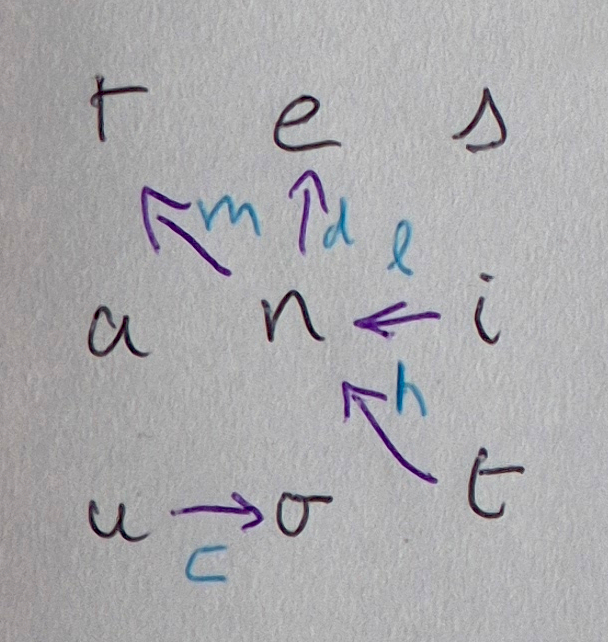 r e s
m d l
a n i
h
u o t
c